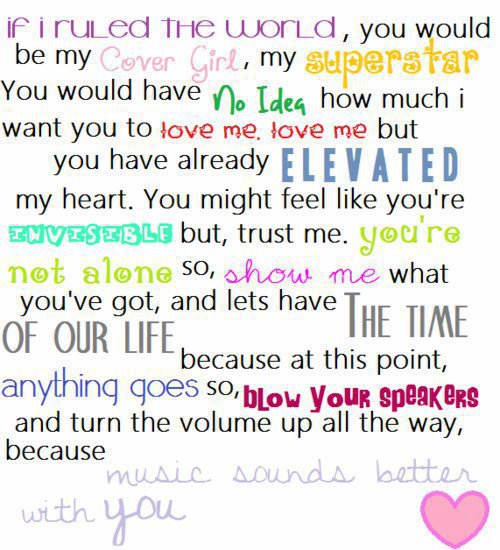 if i ruled the world, you would
be my Cover Girl, my superstar
You would have No Idea how much i
want you to love me, love me but
you have already ELEVATED
my heart. You might feel like you're
INVISIBLE but, trust me. you're
not alone so, show me what
you've got, and lets have THE TIME
OF OUR LIFE
because at this point,
anything goes so, blow your speakers
and turn the volume up all the way,
because
music sounds better
with you